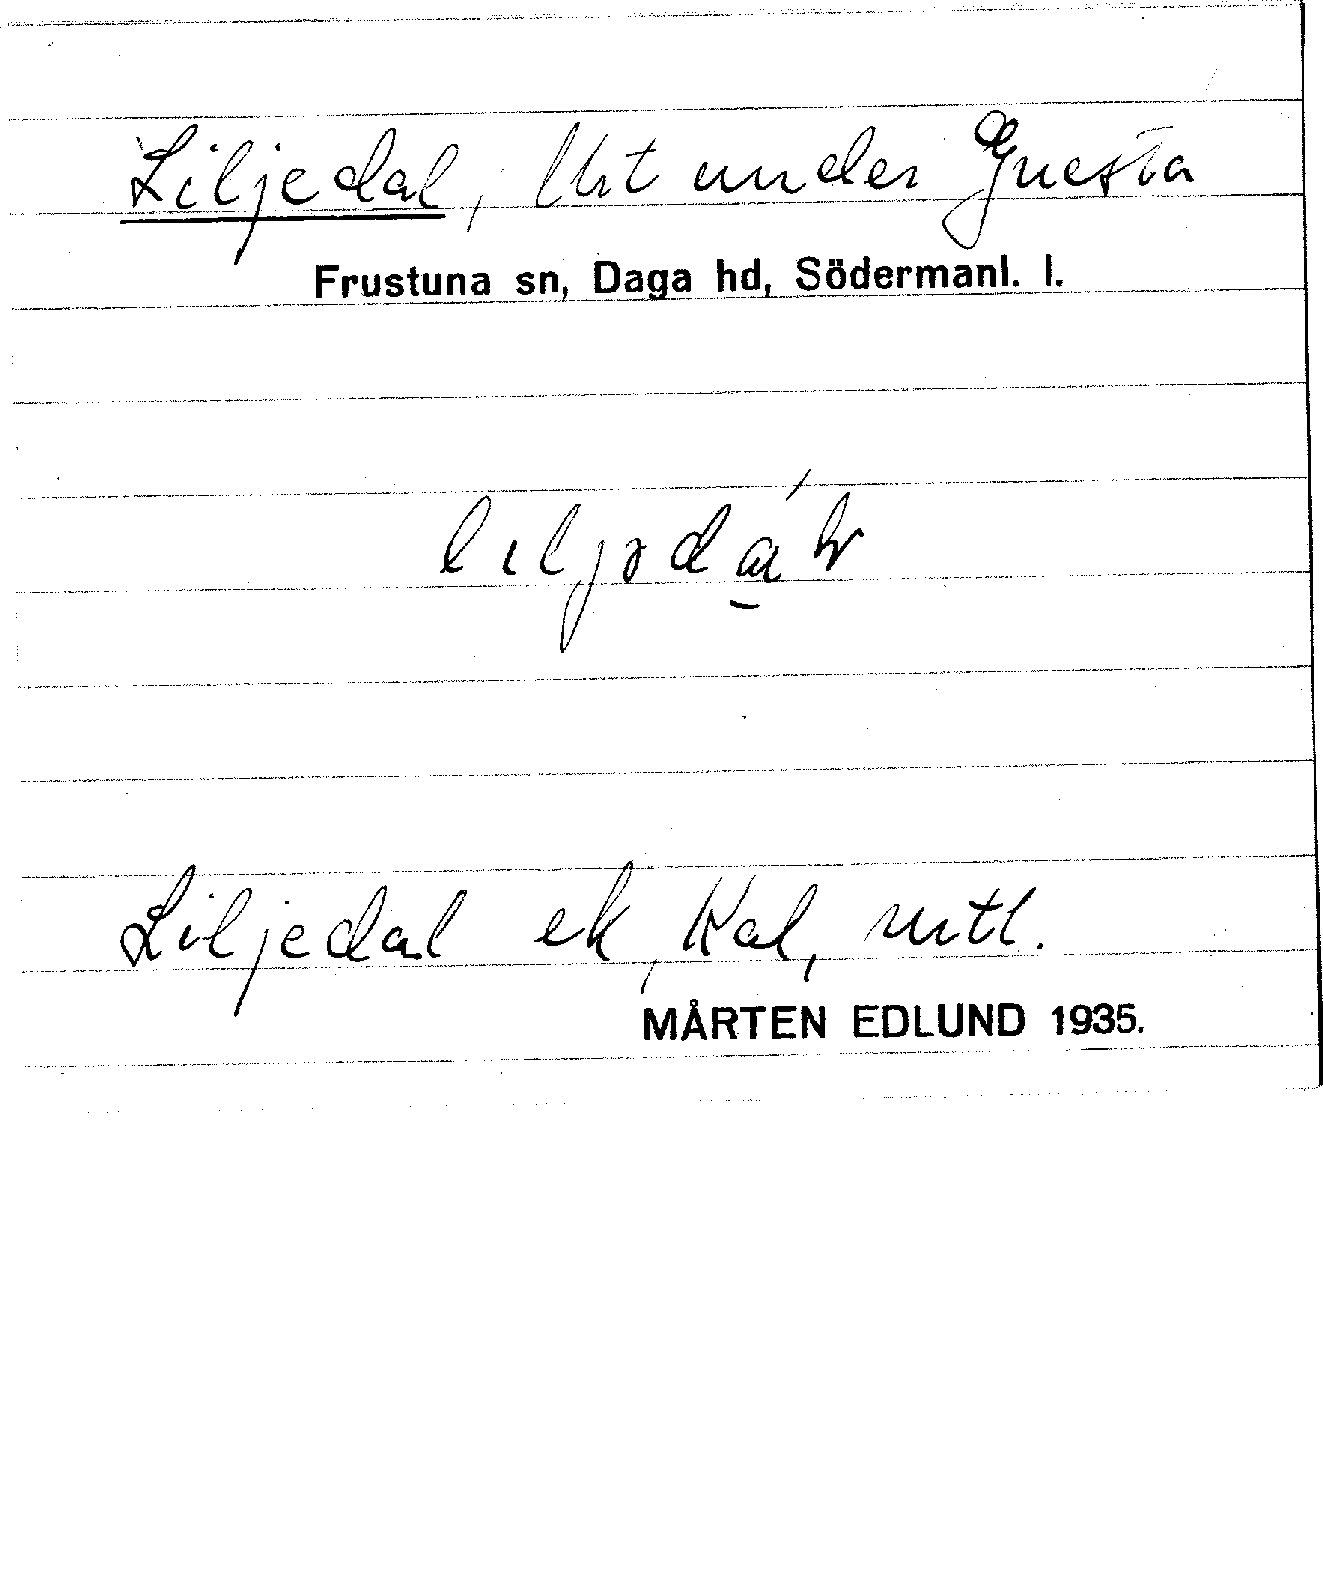 Liljedal, Urt under Gnesta
Frustuna sn, Daga hd, Södermanl. l.
Liljedal ek, Kal,
MÅRTEN EDLUND 1935.